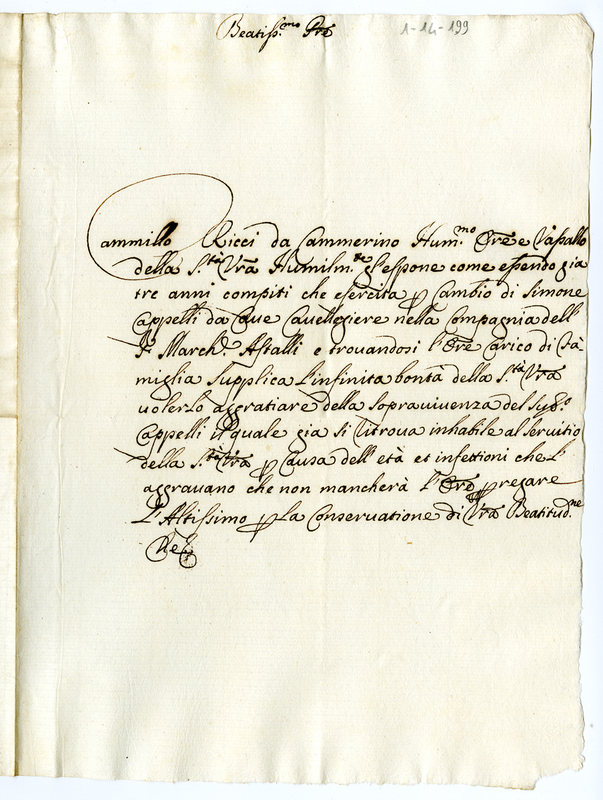 Beatiss.mo Pre 1-14-199
Cammillo Ricci da Cammerino Hum.mo Ore e Vassallo
della S.tà Vra Humilm.te gl'espone come essendo gia
tre anni compiti che esercita p Cambio di Simone
Cappelli da Caval legiere nella Compagnia dell'
March. Astalli e trovandosi l'Ore carico di fa-
miglia supplica l'infinita bontà della S.tà Vra
volerlo aggratiare della sopravivenza del Sud.o
Cappelli il quale gia si ritrova inhabile al servitio
della S.tà Vra p causa dell'età et infettioni che l'
aggravano che non mancherà l'Ore pregare
L'Altissimo p la Conservatione di Vra Beatitud.ne